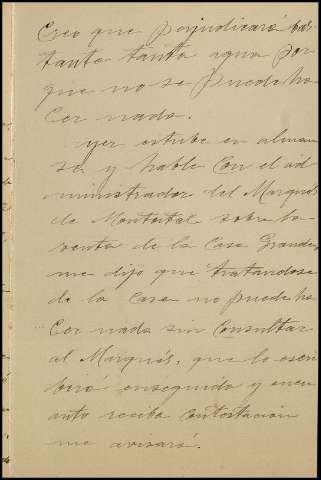 Creo que perjudicará bas-
tante tanta agua por
que no se puede ha-
cer nada.
Ayer estube en alman-
sa y hablé con el ad-
ministrador del Marqués
de Montortal sobre la
venta de la Casa Grande,
me dijo que tratandose
de la Casa no puede ha-
cer nada sin consultar
al Marqués, que le escri-
birá enseguida y encu-
anto reciba contestación
me avisará.